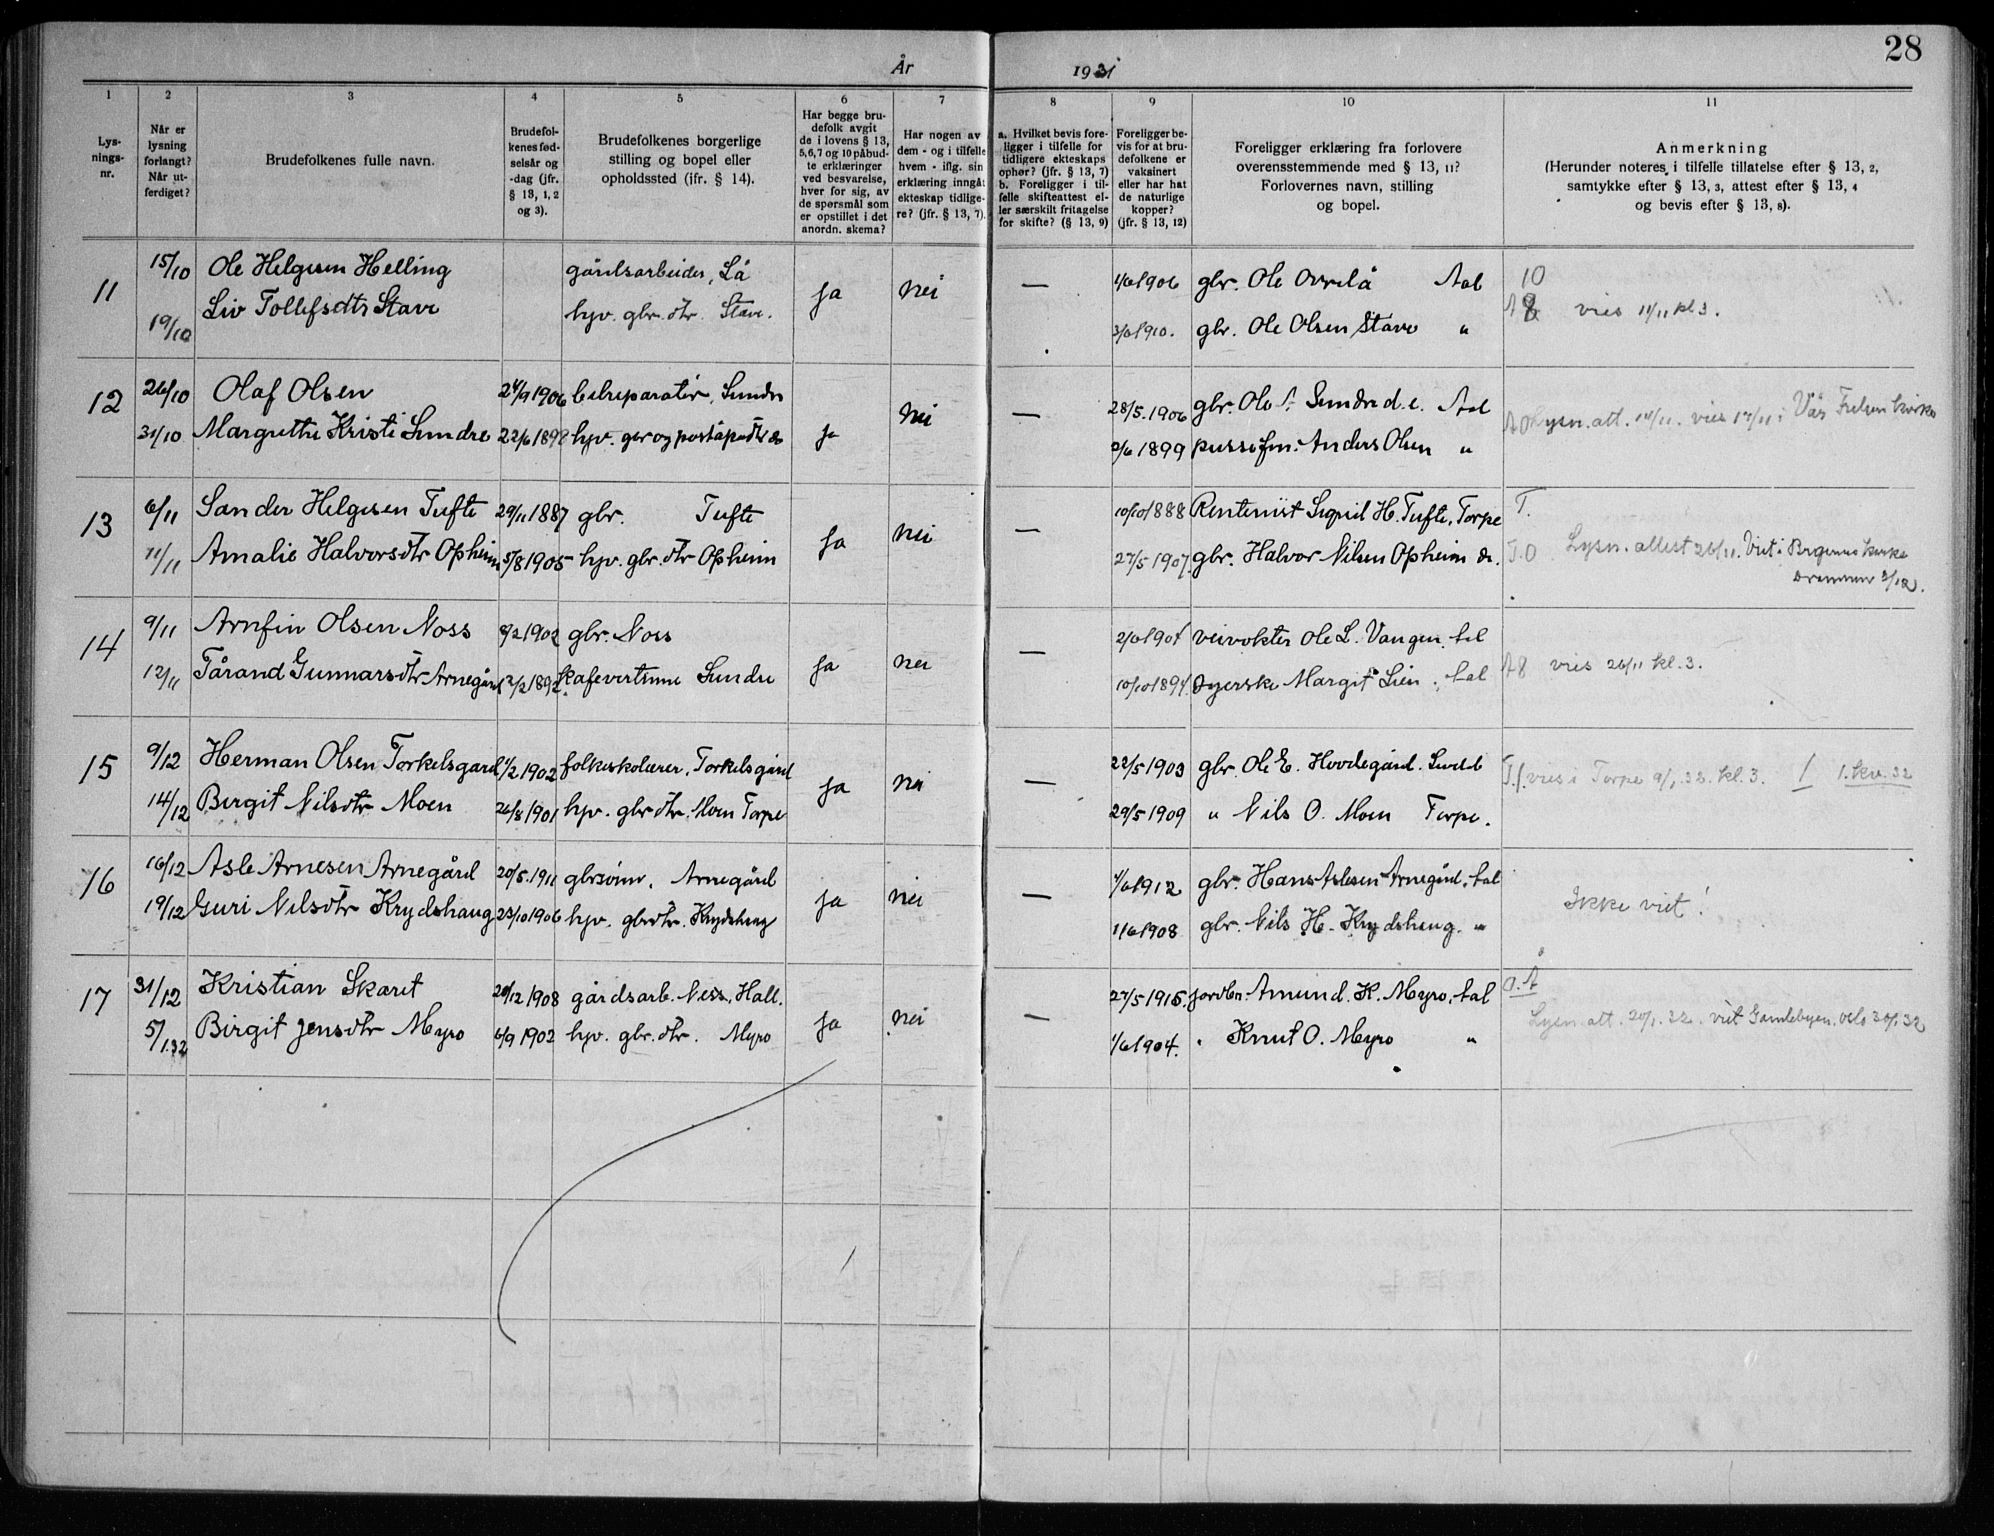 28
År 1931
1 2 3 4 5 6 7 8 9 10 11
Lysningsnr.
Når er lysning forlangt? Når utferdiget?
Brudefolkenes fulle navn.
Brudefolkenes fødselsår og -dag (jfr. § 13, 1, 2 og 3).
Brudefolkenes borgerlige stilling og bopel eller opholdssted (ifr. § 14).
Har begge brudefolk avgit de i lovens § 13, 5,6,7 og 10 påbudte erklæringer ved besvarelse, hver for sig, av de spørsmål som er opstillet i det anordn. skema?
Har nogen av dem - og i tilfelle hvem - iflg. sin erklæring inngåt ekteskap tidligere? (jfr. § 13, 7).
a. Hvilket bevis foreligger i tilfelle for tidligere ekteskaps ophør? (jfr. § 13, 7) b. Foreligger i tilfelle skifteattest eller særskilt fritagelse for skifte? (§ 13, 9)
Foreligger bevis for at brudefolkene er vaksinert eller har hat de naturlige kopper? (jfr. § 13, 12)
Foreligger erklæring fra forlovere overensstemmende med § 13, 11? Forlovernes navn, stilling og bopel.
Anmerkning (Herunder noteres i tilfelle tillatelse efter § 13, 2, samtykke efter § 13, 3, attest efter § 13, 4 og bevis efter § 13, 8).
11 15/10 Ole Helgesen Helling gårdsarbeider, Lå ja nei — 1/6 1906 gbr. Ole Ovrelå Aal 10
19/10 Liv Tollefsdtr Stave hjv. gbr. dtr. Stave. 3/6 1910. gbr. Ole Olsen Stave " vies 11/11 kl 3.
12 26/10 Olaf Olsen 24/9 1906 bilreparatør, Sundre nei — 28/5.1906 gbr. Ole A. Sundre d.e. Aal
31/10 Margrethe Kristi Sundre 22/6 1898 hjv. ja 2/6 1899 Anders Olsen " Lysn. att. 14/11. vies 17/11 i Vår Frelsers kirke
13 6/11 Sander Helgesen Tufte 29/11 1887 gbr. Tufte ja nei — 10/10 1888 Rentenist Sigrid H. Tufte, Torpe T.
11/11 Amalie Halvorsdtr Opheim 5/8 1905 hjv. gbr. dtr Opheim 27/5 1907. gbr. Halvor Nilsen Opheim do. T.O Lysn. attest 26/11. Viet i Bragernes kirke
Drammen 3/12.
14 9/11 Arnfin Olsen Noss 8/2 1902 gbr. Noss ja nei — 2/6 1907 veivokter Ole L. Vangen. Aal
12/11 Tårand Gunnarsdtr Arnegård 12/2 1892. kafevertinne Sundre 10/10 1894. Syerske Margit Lien, Aal A8 vies 26/11 kl. 3.
15 9/12 Herman Olsen Torkelsgard 1/2 1902 folkeskolærer, Torkelsgård ja nei — 22/5 1903 gbr. Ole E. Hovdegård.
14/12 Birgit Nilsdtr Moen 26/8 1901 hjv. gbr dtr. Moen Torpe 29/5 1909 " Nils O. Moen Torpe. vies i Torpe 9/1 32. kl. 3. 1 1. kv. 32
16 16/12 Asle Arnesen Arnegård 20/5.1911 gbrsønn. Arnegård ja nei — 1/6 1912 gbr. Hans Aslesen Arnegård, Aal
19/12 Guri Nilsdtr Krydshaug 23/10 1906 hjv. gbrdtr. Krydshaug 1/6 1908 gbr. Nils H. Krydshaug. " Ikke viet!
17 31/12 Kristian Skaret 28/12 1908 gårdsarb. Ness, Hall. ja nei — 27/5 1915. jordbr. Amund K. Myro, Aal O. A
5/1.32 Birgit Jensdtr Myro 6/9 1902 hjv. gbr. dtr. Myro 1/6 1904. " Knut O. Myro " Lysn. att. 20/1. 32. viet Gamlebyen. Oslo 30/1 32